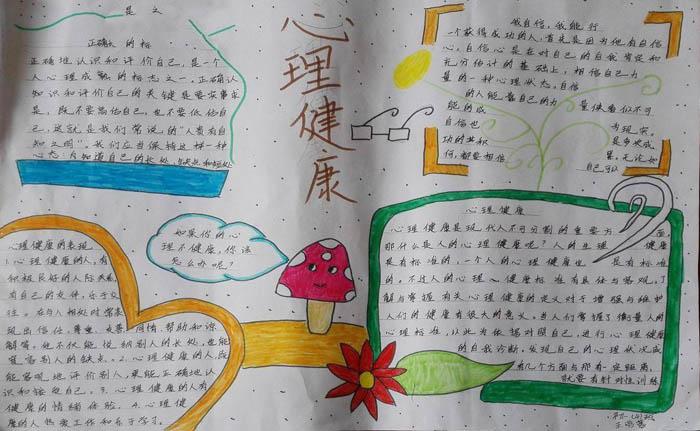 心理健康
正确的
正确地认识和评价自己,是一个
人心理成熟的标志之一。正确认
知识和评价自己的关键是要实事求
是,既不要高估自己,也不要低估自
己,这就是我们常说的,“人贵有自
知之明”。我们应当保持这样一种
心态:知道自己的长处
我自信,我能行
一个获得成功的人,首先是因为他有自信
心。自信心是在对自己的自我肯定和
充分估计的基础上,相信自己力
量的一种心理状态。自信
的人能靠自己的力量使看似不可
能的成为现实。
自信也是多次成
功的共和量,无论如
何,都要相信自己
如果你的心
理不健康,你该
怎么办呢?
心理健康的表现
1.心理健康的人,有
积极良好的人际关系,
有自己的朋友,乐于交
理。在与人相处时常表
现出信任、尊重、友善、同情、帮助和谅
解等。他不仅能悦纳别人的长处,也能
宽容别人的缺点。2.心理健康的人总
能客观地评价别人,更能正确地认
识和接受自己。3.心理健康的人有
健康的情绪体验。4.心理健
康的人热爱工作和乐于学习。
心理健康
心理健康是现代人不可分割的重要方面,
那什么是人的心理健康呢?人的生理健康
是有标准的,一个人的心理健康也是有标准
的。不过人的心理健康标准
解与掌握有关心理健康的定义对于增强与维护
人们的健康有很大的意义。当人们掌握了衡量人的
心理标准,以此为依据对照自己,进行心理健康
的自我诊断。发现自己的心理状况
有几个方面与那有一定距离,
就要有针对性训练